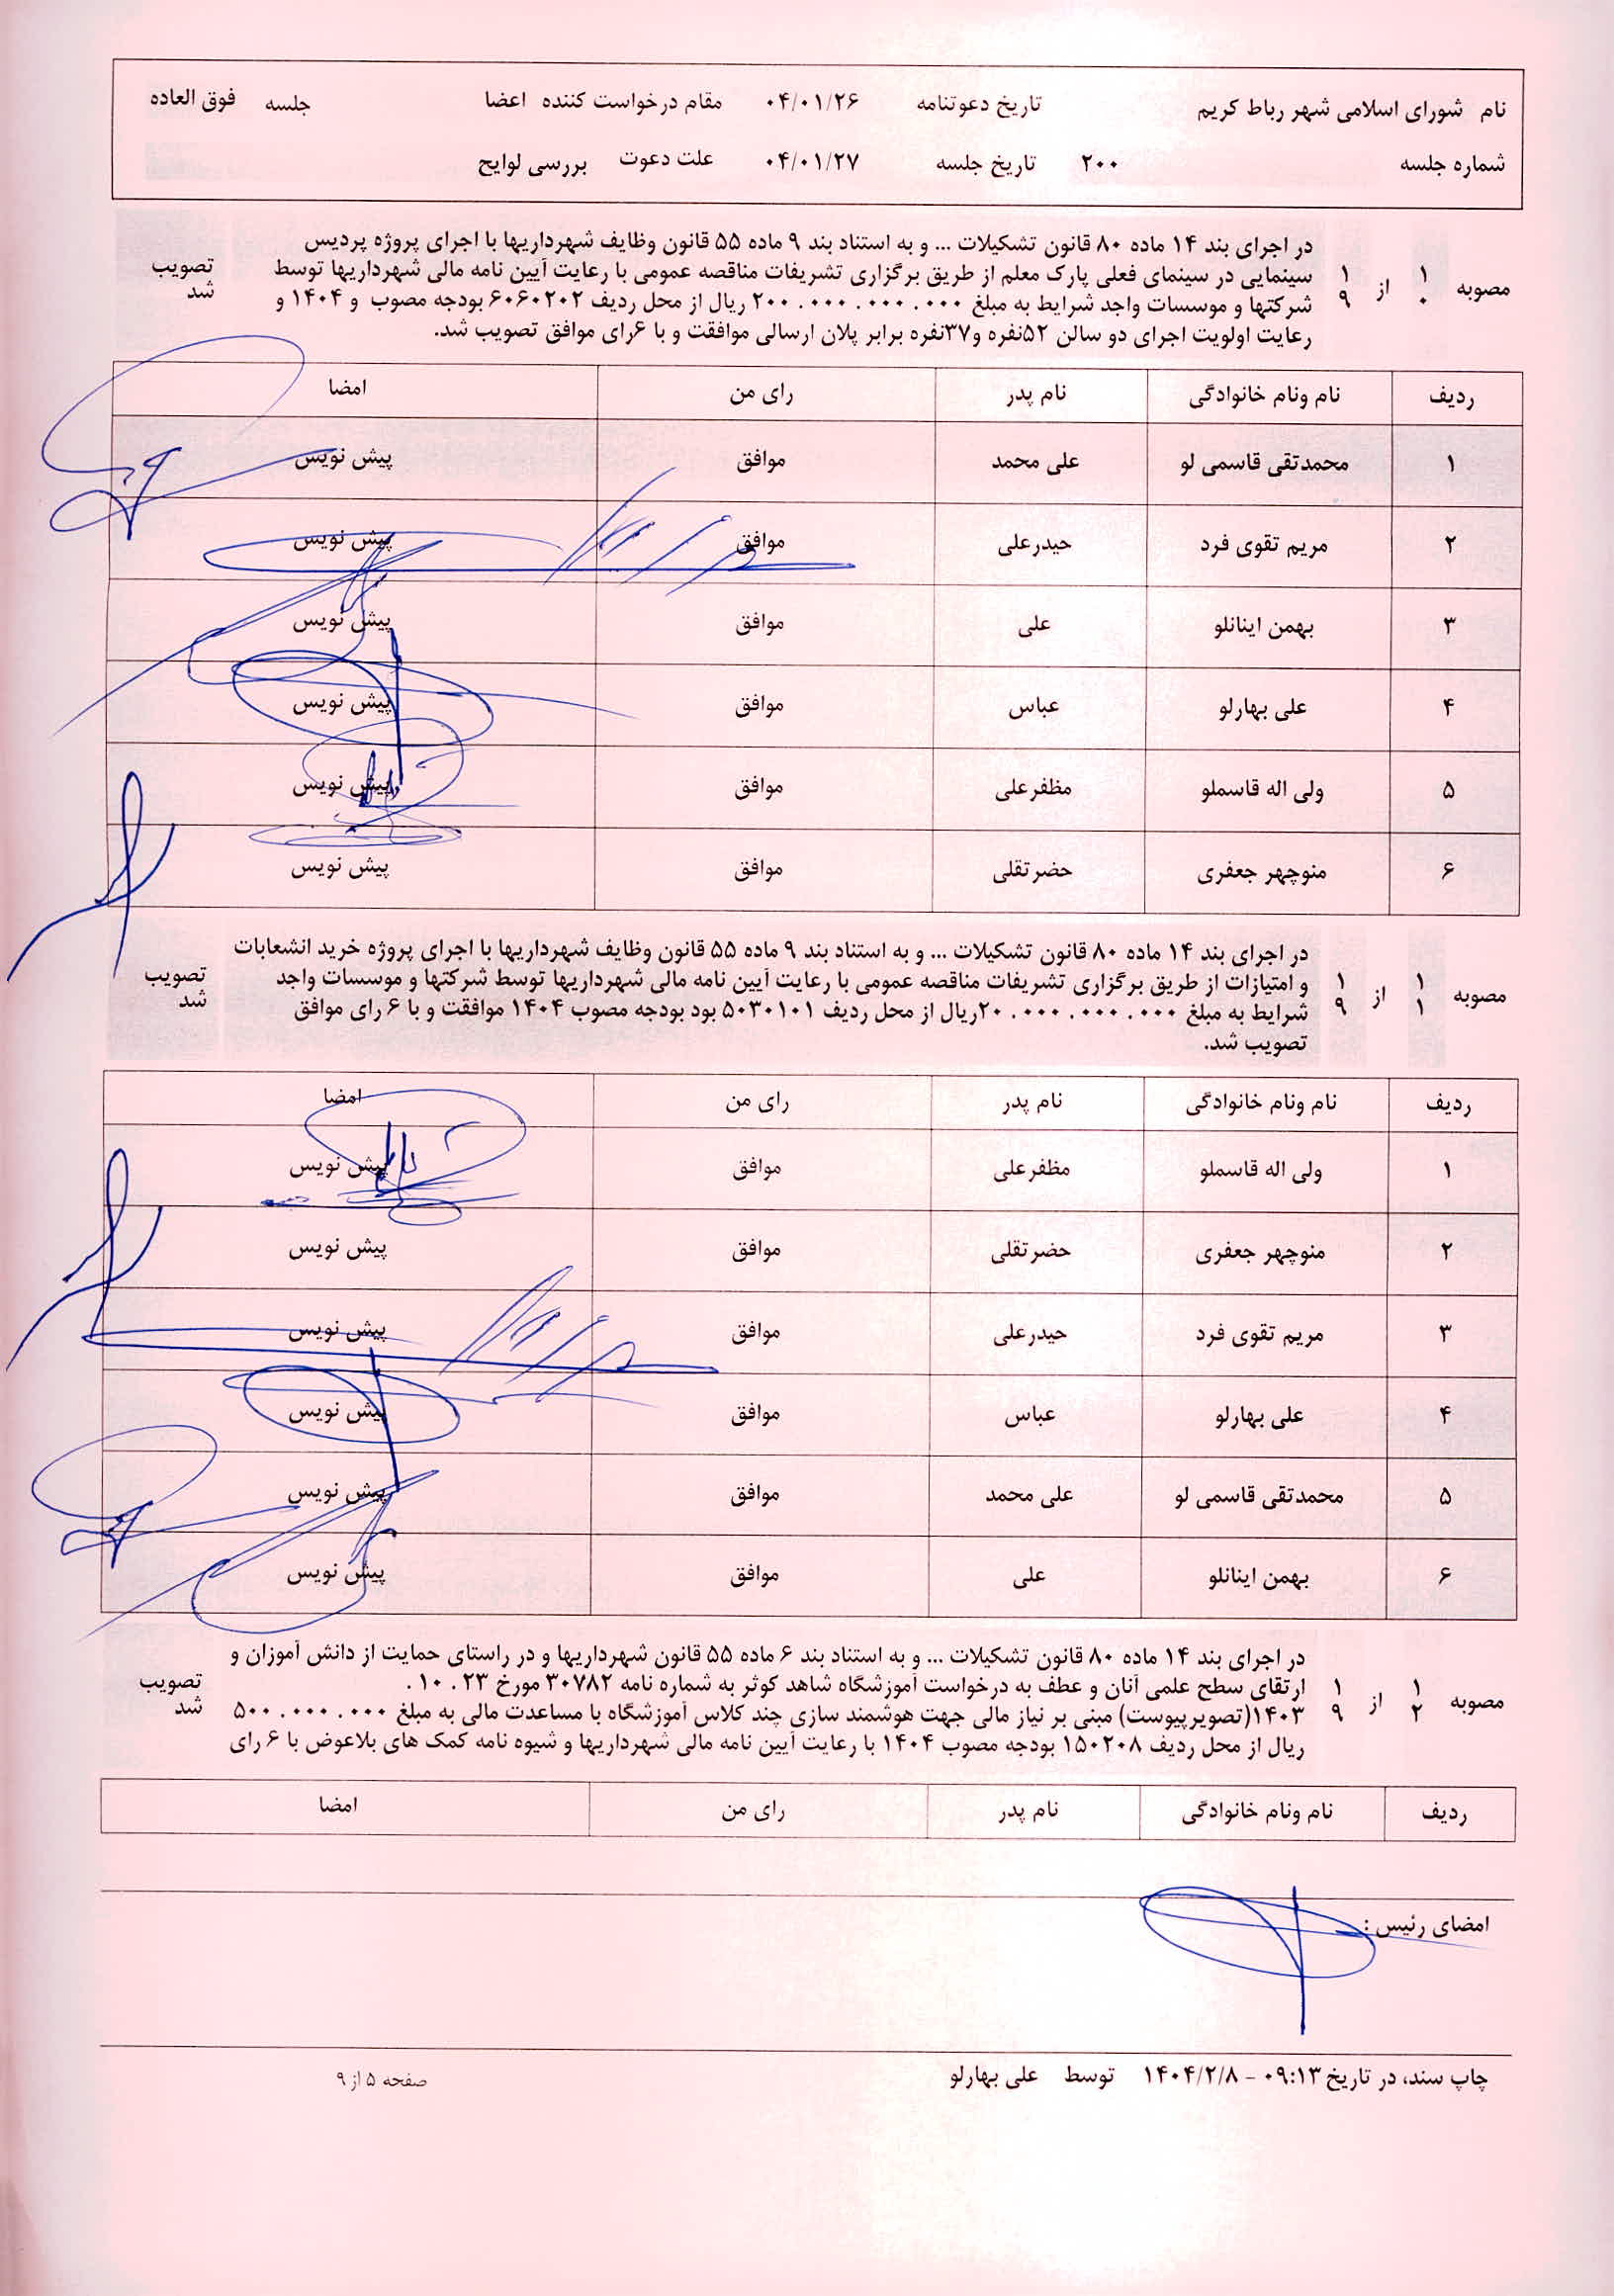 نام شورای اسلامی شهر رباط کریم تاریخ دعوتنامه ۰۴/۰۱/۲۶ مقام درخواست کننده اعضا جلسه فوق العاده
شماره جلسه ۲۰۰ تاریخ جلسه ۰۴/۰۱/۲۷ علت دعوت بررسی لوایح
مصوبه ۱۰ از ۱۹
در اجرای بند ۱۴ ماده ۸۰ قانون تشکیلات ... و به استناد بند ۹ ماده ۵۵ قانون وظایف شهرداریها با اجرای پروژه پردیس
سینمایی در سینمای فعلی پارک معلم از طریق برگزاری تشریفات مناقصه عمومی با رعایت آیین نامه مالی شهرداریها توسط
شرکتها و موسسات واجد شرایط به مبلغ ۲۰۰.۰۰۰.۰۰۰.۰۰۰ ریال از محل ردیف ۶۰۶۰۲۰۲ بودجه مصوب و ۱۴۰۴ و
رعایت اولویت اجرای دو سالن ۵۲نفره و۳۷نفره برابر پلان ارسالی موافقت و با ۶رای موافق تصویب شد.
تصویب شد
ردیف نام ونام خانوادگی نام پدر رای من امضا
۱ محمدتقی قاسمی لو علی محمد موافق پیش نویس
۲ مریم تقوی فرد حیدرعلی موافق پیش نویس
۳ بهمن اینانلو علی موافق پیش نویس
۴ علی بهارلو عباس موافق پیش نویس
۵ ولی اله قاسملو مظفرعلی موافق پیش نویس
۶ منوچهر جعفری حضرتقلی موافق پیش نویس
مصوبه ۱۱ از ۱۹
در اجرای بند ۱۴ ماده ۸۰ قانون تشکیلات ... و به استناد بند ۹ ماده ۵۵ قانون وظایف شهرداریها با اجرای پروژه خرید انشعابات
و امتیازات از طریق برگزاری تشریفات مناقصه عمومی با رعایت آیین نامه مالی شهرداریها توسط شرکتها و موسسات واجد
شرایط به مبلغ ۲۰.۰۰۰.۰۰۰.۰۰۰ریال از محل ردیف ۵۰۳۰۱۰۱ بود بودجه مصوب ۱۴۰۴ موافقت و با ۶ رای موافق
تصویب شد.
تصویب شد
ردیف نام ونام خانوادگی نام پدر رای من امضا
۱ ولی اله قاسملو مظفرعلی موافق پیش نویس
۲ منوچهر جعفری حضرتقلی موافق پیش نویس
۳ مریم تقوی فرد حیدرعلی موافق پیش نویس
۴ علی بهارلو عباس موافق پیش نویس
۵ محمدتقی قاسمی لو علی محمد موافق پیش نویس
۶ بهمن اینانلو علی موافق پیش نویس
مصوبه ۱۲ از ۱۹
در اجرای بند ۱۴ ماده ۸۰ قانون تشکیلات ... و به استناد بند ۶ ماده ۵۵ قانون شهرداریها و در راستای حمایت از دانش آموزان و
ارتقای سطح علمی آنان و عطف به درخواست آموزشگاه شاهد کوثر به شماره نامه ۳۰۷۸۲ مورخ ۲۳ . ۱۰ .
۱۴۰۳(تصویرپیوست) مبنی بر نیاز مالی جهت هوشمند سازی چند کلاس آموزشگاه با مساعدت مالی به مبلغ ۵۰۰.۰۰۰.۰۰۰
ریال از محل ردیف ۱۵۰۲۰۸ بودجه مصوب ۱۴۰۴ با رعایت آیین نامه مالی شهرداریها و شیوه نامه کمک های بلاعوض با ۶ رای
تصویب شد
ردیف نام ونام خانوادگی نام پدر رای من امضا
امضای رئیس :
چاپ سند، در تاریخ ۰۹:۱۳ - ۱۴۰۴/۲/۸ توسط علی بهارلو صفحه ۵ از ۹